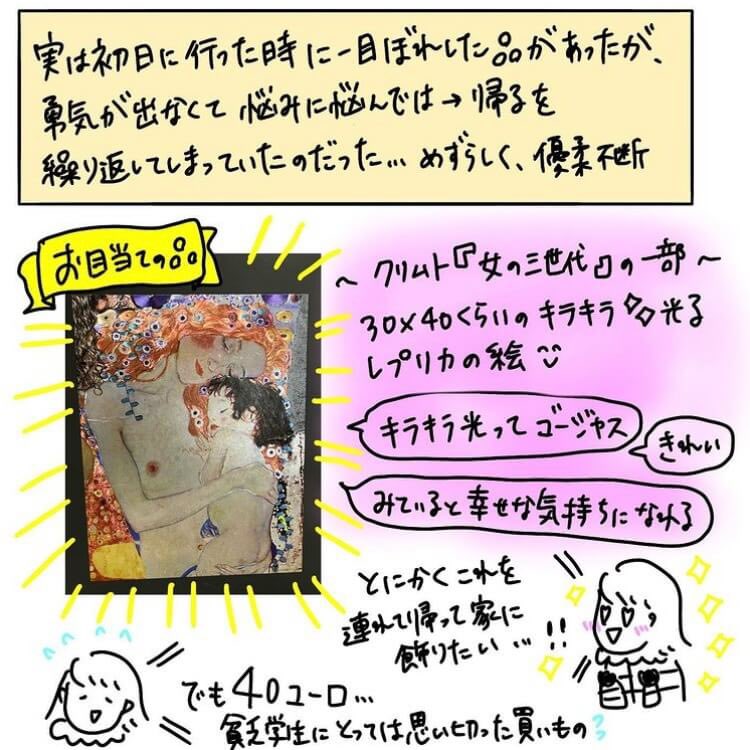 実は初日に行った時に一目ぼれした品があったが、
勇気が出なくて悩みに悩んでは→帰るを
繰り返してしまっていたのだった…めずらしく、優柔不断
お目当ての品
~クリムト『女の三世代』の一部~
30×40くらいのキラキラ光る
レプリカの絵
キラキラ光ってゴージャス
きれい
みていると幸せな気持ちになれる
とにかくこれを
連れて帰って家に
飾りたい…!!
でも40ユーロ…
貧乏学生にとっては思い切った買いもの